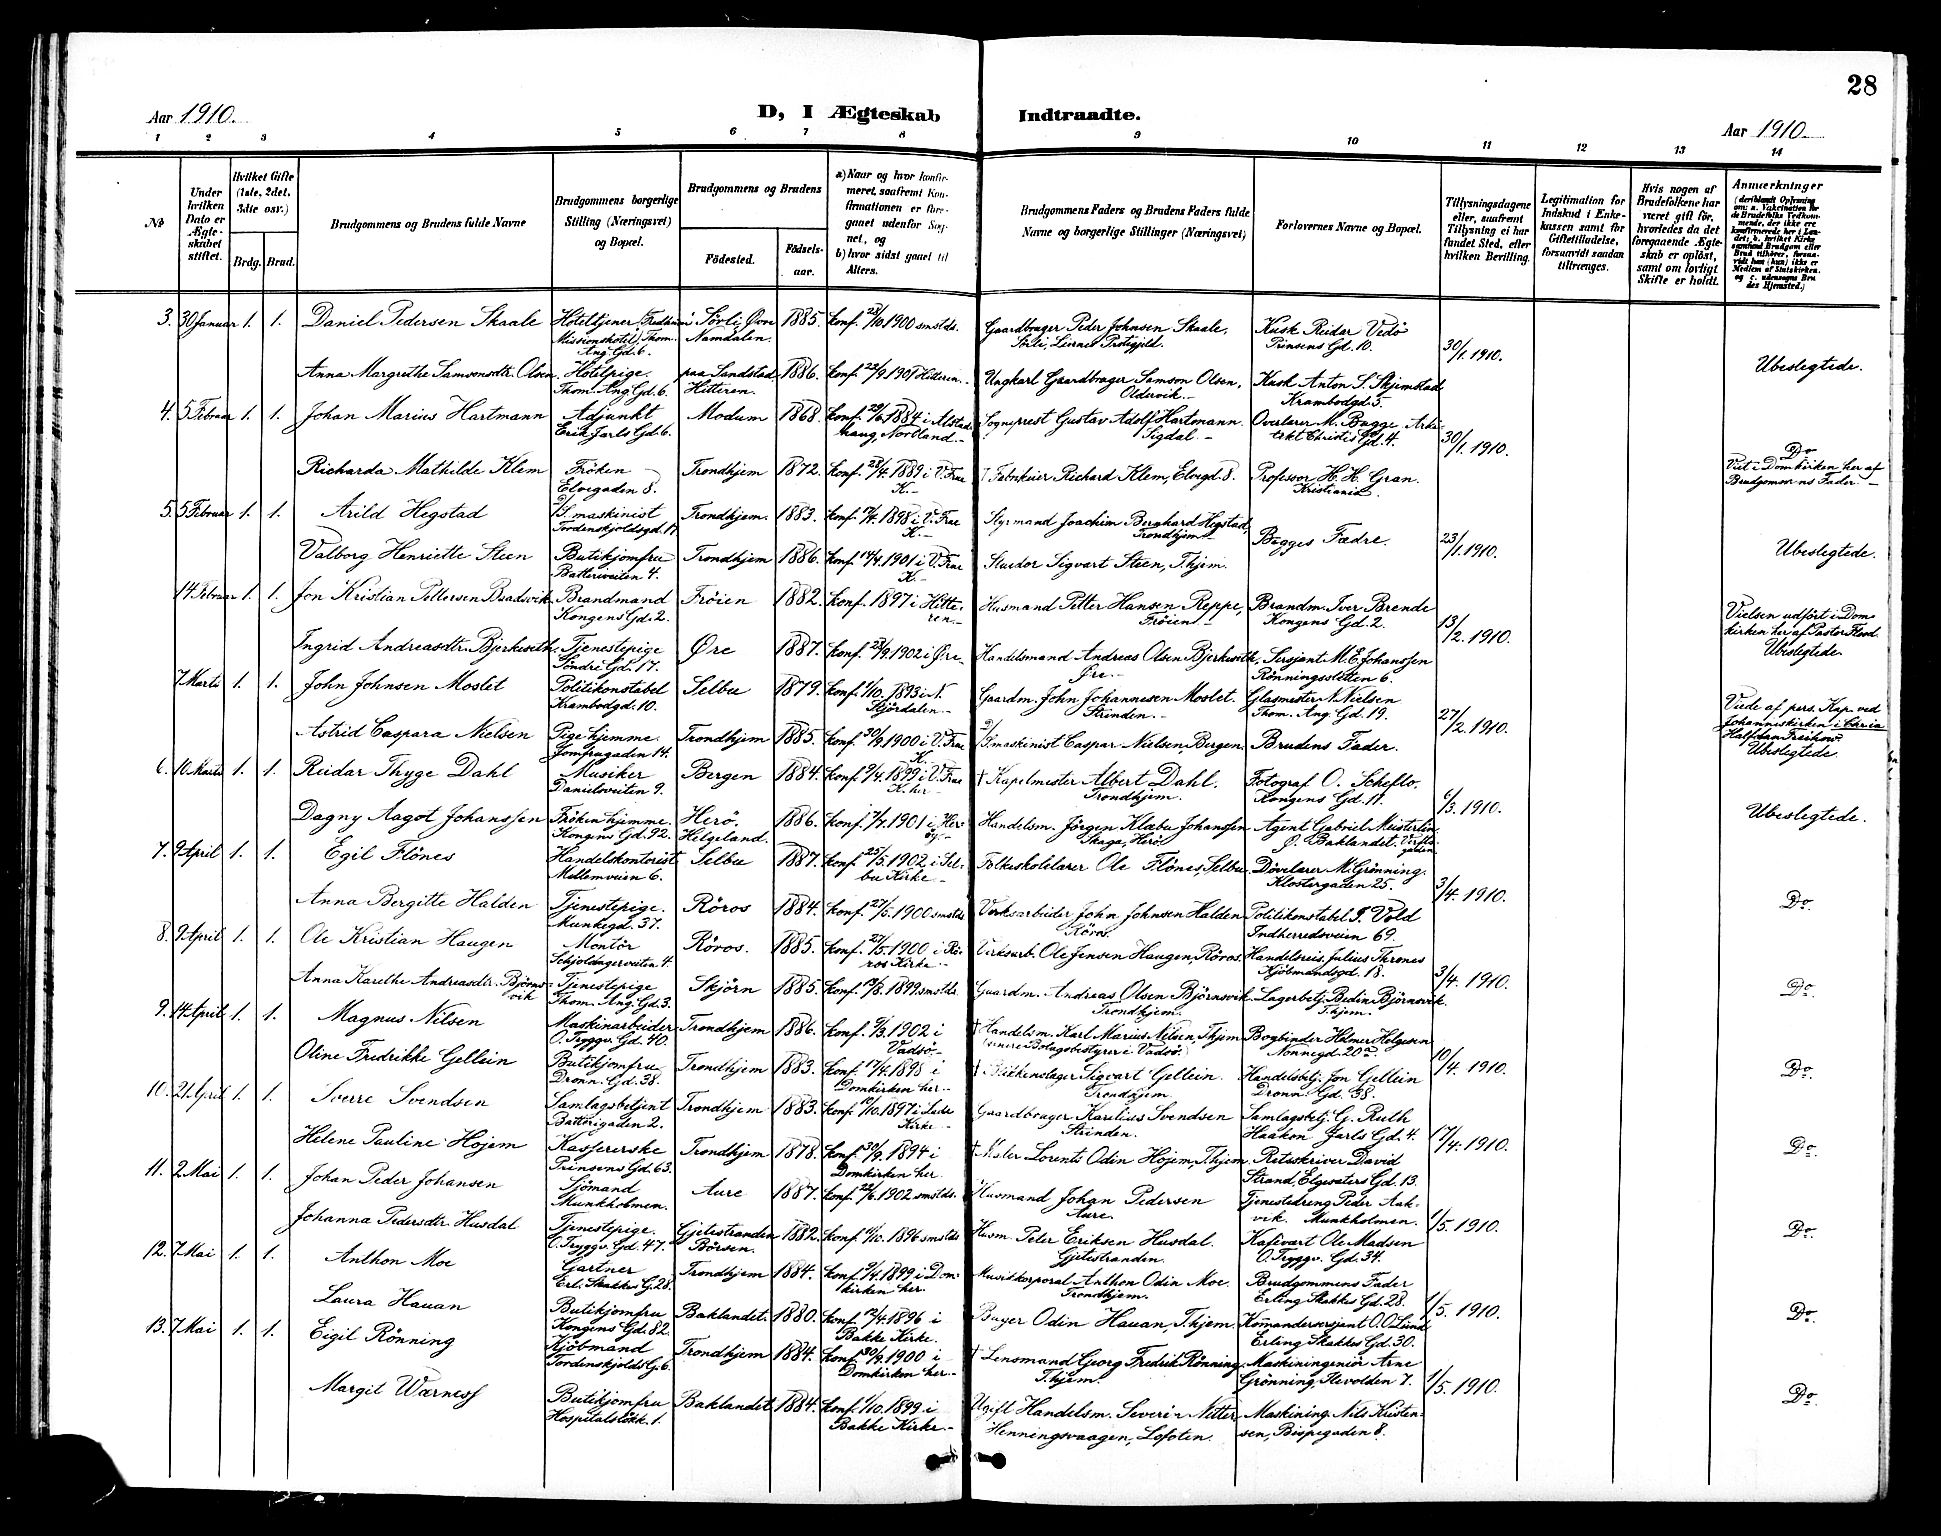 28
Aar 1910.
D, I Ægteskab Indtraadte.
Aar 1910.
1 2 3 4 5 6 7 8 9 10 11 12 13 14
No
Under hvilken Dato er Ægteskabet stiftet.
Hvilket Gifte (1ste, 2det, 3die osv.)
Brdg. Brud.
Brudgommens og Brudens fulde Navne
Brudgommens borgerlige Stilling (Næringsvei) og Bopæl.
Brudgommens og Brudens
Födested.
Födselsaar.
a) Naar og hvor konfirmeret, saafremt Konfirmationen er foregaaet udenfor Sognet, og
b) hvor sidst gaaet til Alters.
Brudgommens Faders og Brudens Faders fulde Navne og borgerlige Stillinger (Næringsvei)
Forlovernes Navne og Bopæl.
Tillysningsdagene eller, saafremt Tillysning ei har fundet Sted, efter hvilken Bevilling.
Legitimation for Indskud i Enkekassen samt for Giftetilladelse, forsaavidt saadan tiltrænges.
Hvis nogen af Brudefolkene har været gift før, hvorledes da det foregaaende Ægteskab er opløst, samt om lovligt Skifte er holdt.
Anmerkninger
3. 30 Januar 1. 1. Daniel Pedersen Skaale Hoteltjener, Missionshotel, Thom. Ang. Gd. 6. Sörli, Övre Namdalen. 1885. konf. 28/10.1900 smstds. Gaardbruger Peder Johnsen Skaale, Sörli, Liernes Prstgjeld. Kusk Reidar Vedö Prinsens Gd. 10. 30/1.1910.
Anna Margrethe Samsonsdtr. Olsen. Hotelpige. Thom. Ang. Gd. 6. paa Sandstad Hitteren. 1886. konf. 22/9.1901 Hitteren. Ungkarl Gaardbruger Samson Olsen, Oldervik. Kusk Anton S. Skjemstad Krambodgd. 5. Ubeslegtede.
4. 5 Februar 1. 1. Johan Marius Hartmann Adjunkt Erik Jarls Gd. 6. Modum 1868. konf. 29/6.1884 i Alstadhaug, Nordland. Sogneprest Gustav Adolf Hartmann. Sigdal. Overlærer M. Bugge, Arkitekt Christies Gd. 4. 30/1.1910.
Richarda Mathilde Klem Fröken Elvegaden 8. Trondhjem 1872. konf. 28/4.1889 i V. Frue K. † Fabrikeier Richard Klem, Elvegd. 8. Professor H. H. Gran. Kristiania. Do Viet i Domkirken her af Brudgommens Fader.
5. 5 Februar 1. 1. Arild Hegstad D/S. maskinist Tordenskjoldsgd. 17. Trondhjem. 1883. konf. 17/4.1898 i V. Frue K. Styrmand Joachim Bernhard Hegstad, Trondhjem. Begges Fædre. 23/1.1910.
Valborg Henriette Steen Butikjomfru Batteriveiten 4. Trondhjem 1886. konf. 14/4.1901 i V. Frue K. Stuidor Sigvart Steen, T.hjem. Ubeslegtede.
14 Februar 1. 1. Jon Kristian Pettersen Bradsvik Brandmand Kongens Gd. 2. Fröien 1882. konf. 1897 i Hitteren. Husmand Petter Hansen Reppe, Fröien. Brandm. Iver Brende Kongens Gd. 2. 13/2.1910.
Ingrid Andreasdtr. Bjerkeseth. Tjenestepige Sindre Gd. 17. Øre 1887. konf. 28/9.1902 i Øre. Handelsmand Andreas Olsen Bjerkeseth, Øre. Sersjant M. E. Johanssen Rönningsletten 6. Vielsen udfört i Domkirken her af Pastor Flood. Ubeslegtede.
7 Marts 1. 1. John Johnsen Moslet Politikonstabel Krambodgd. 10. Selbu 1879. konf. 1/10.1893 i N. Stjördalen. Gaardm. John Johannesen Moslet. Strinden. Glasmester N. Nielsen Thom. Ang. Gd. 19. 27/2.1910.
Astrid Caspara Nielsen Pige hjemme. Jomfrugaden 14. Trondhjem 1885. konf. 30/9.1900 i V. Frue K. D/S. maskinist Caspar Nielsen, Bergen. Brudens Fader. Viede af pers. Kap. ved Johanniskirken i Chr.ia Halfdan Freihow. Ubeslegtede.
6. 10 Marts 1. 1. Reidar Thyge Dahl Musiker Danielsveiten 9. Bergen 1884. konf. 9/4.1899 i V. Frue K. her † Kapelmester Albert Dahl. Trondhjem. Fotograf O. Scheflo. Kongens Gd. 11. 6/3.1910.
Dagny Aagot Johanssen Fröken hjemme. Kongens Gd. 92. Herö. Helgeland. 1886. konf. 7/7.1901 i Heröy. Handelsm. Jörgen Klæbo Johanssen Skaga, Herö. Agent Gabriel Meisterlin Ö. Baklandet. Ubeslegtede.
7. 9 April 1. 1. Egil Flönes Handelskontorist Mellemveien 6. Selbu 1887. konf. 25/5.1902 i Selbu Kirke. Folkeskolelærer Ole Flönes, Selbu Dövelærer M. Grönning. Klostergaden 25. 3/4.1910.
Anna Bergitte Halden Tjenestepige. Munkegd. 37. Röros 1884. konf. 27/5.1900 smstds Verksarbeider John Johnsen Halden Röros. Politikonstabel J. Vold Indherredsveien 69. Do.
8. 9 April 1. 1. Ole Kristian Haugen Montör Schjoldagerveiten 4. Röros. 1885. konf. 27/5.1900 i Röros Kirke. Verksarb. Ole Jensen Haugen, Röros. Handelsreis. Julius Thrones Kjöbmandsgd. 18. 3/4.1910.
Anna Karethe Andreasdtr. Björnsvik Tjenestepige Thom. Ang. Gd. 3. Skjörn 1885. konf. 1899 smstds. Gaardm. Andreas Olsen Björnsvik. Trondhjem. Lagerbetj. Bedin Björnsvik. T.hjem. Do.
9. 14 April 1. 1. Magnus Nilsen Maskinarbeider O. Tryggv. Gd. 40. Trondhjem 1886. konf. 9/3.1902 i Vadsö. † Handelsm. Karl Marius Nilsen, T.hjem (senere Bolagsbestyrer i Vadsö.) Bogbinder Helmer Helgesen Nonnegd. 20a. 10/4.1910.
Oline Fredrikke Gellein Butikjomfru Dronn. Gd. 38. Trondhjem 1883. konf. 17/4.1898 i Domkirken her. † Blikkenslager Sigvart Gellein. Trondhjem. Handelsbetj. Jon Gellein Dronn. Gd. 38. Do.
10. 21 April 1. 1. Sverre Svendsen Samlagsbetjent Batterigaden 2. Trondhjem 1883. konf. 10/10.1897 i Lade Kirke. Gaardbruger Karelius Svendsen Strinden. Samlagsbetj. G. Ruth Haakon Jarls Gd. 4. 17/4.1910.
Helene Pauline Hojem Kassererske Prinsens Gd. 63. Trondhjem 1878. konf. 30/9.1894 i Domkirken her † Maler Lorents Odin Hojem, T.hjem. Retsskriver David Strand, Elgesæters Gd. 13. Do.
11. 2 Mai 1. 1. Johan Peder Johansen Sjömand Munkholmen. Aure 1887. konf. 22/6.1902 smstds. Husmand Johan Pedersen Aure. Tjenestedreng Peder Aakvik. Munkholmen. 1/5.1910.
Johanna Pedersdtr Husdal Tjenestepige. O. Tryggv. Gd. 47. Gjetestranden Börsen. 1882. konf. 1896 smstds Husm. Peter Eriksen Husdal. Gjetestranden. Kafévært Ole Madsen O. Tryggv. Gd. 34. Do.
12. 7 Mai 1. 1. Anthon Moe Gartner Erl. Skakkes G. 28. Trondhjem 1884. konf. 9/4.1899 i Domkirken her. Musikkorporal Anthon Odin Moe. Trondhjem. Brudgommens Fader Erling Skakkes Gd. 28. 1/5.1910.
Laura Hauan Butikjomfru Kongens Gd. 82. Baklandet. 1880. konf. 12/4.1896 i Bakke Kirke. Bager Odin Hauan, T.hjem. Kommandersersjant O. O. Lund Erling Skakkes Gd. 30. Do.
13. 7 Mai 1. 1. Eigil Rönning Kjöbmand Tordenskjolds G. 6. Trondhjem 1884. konf. 30/9.1900 i Domkirken her. † Lensmand Georg Fredrik Rönning T.hjem. Maskiningeniör Arne Grönning, Ilevolden 7. 1/5.1910.
Margit Warness Butikjomfru Hospitalslökk. 1. Baklandet 1884. konf. 1/10.1899 i Bakke Kirke. Ugift Handelsm. Severin Nitter Henningsvaagen, Lofoten. Maskining. Nils Kristensen, Bispegaden 8. Do.